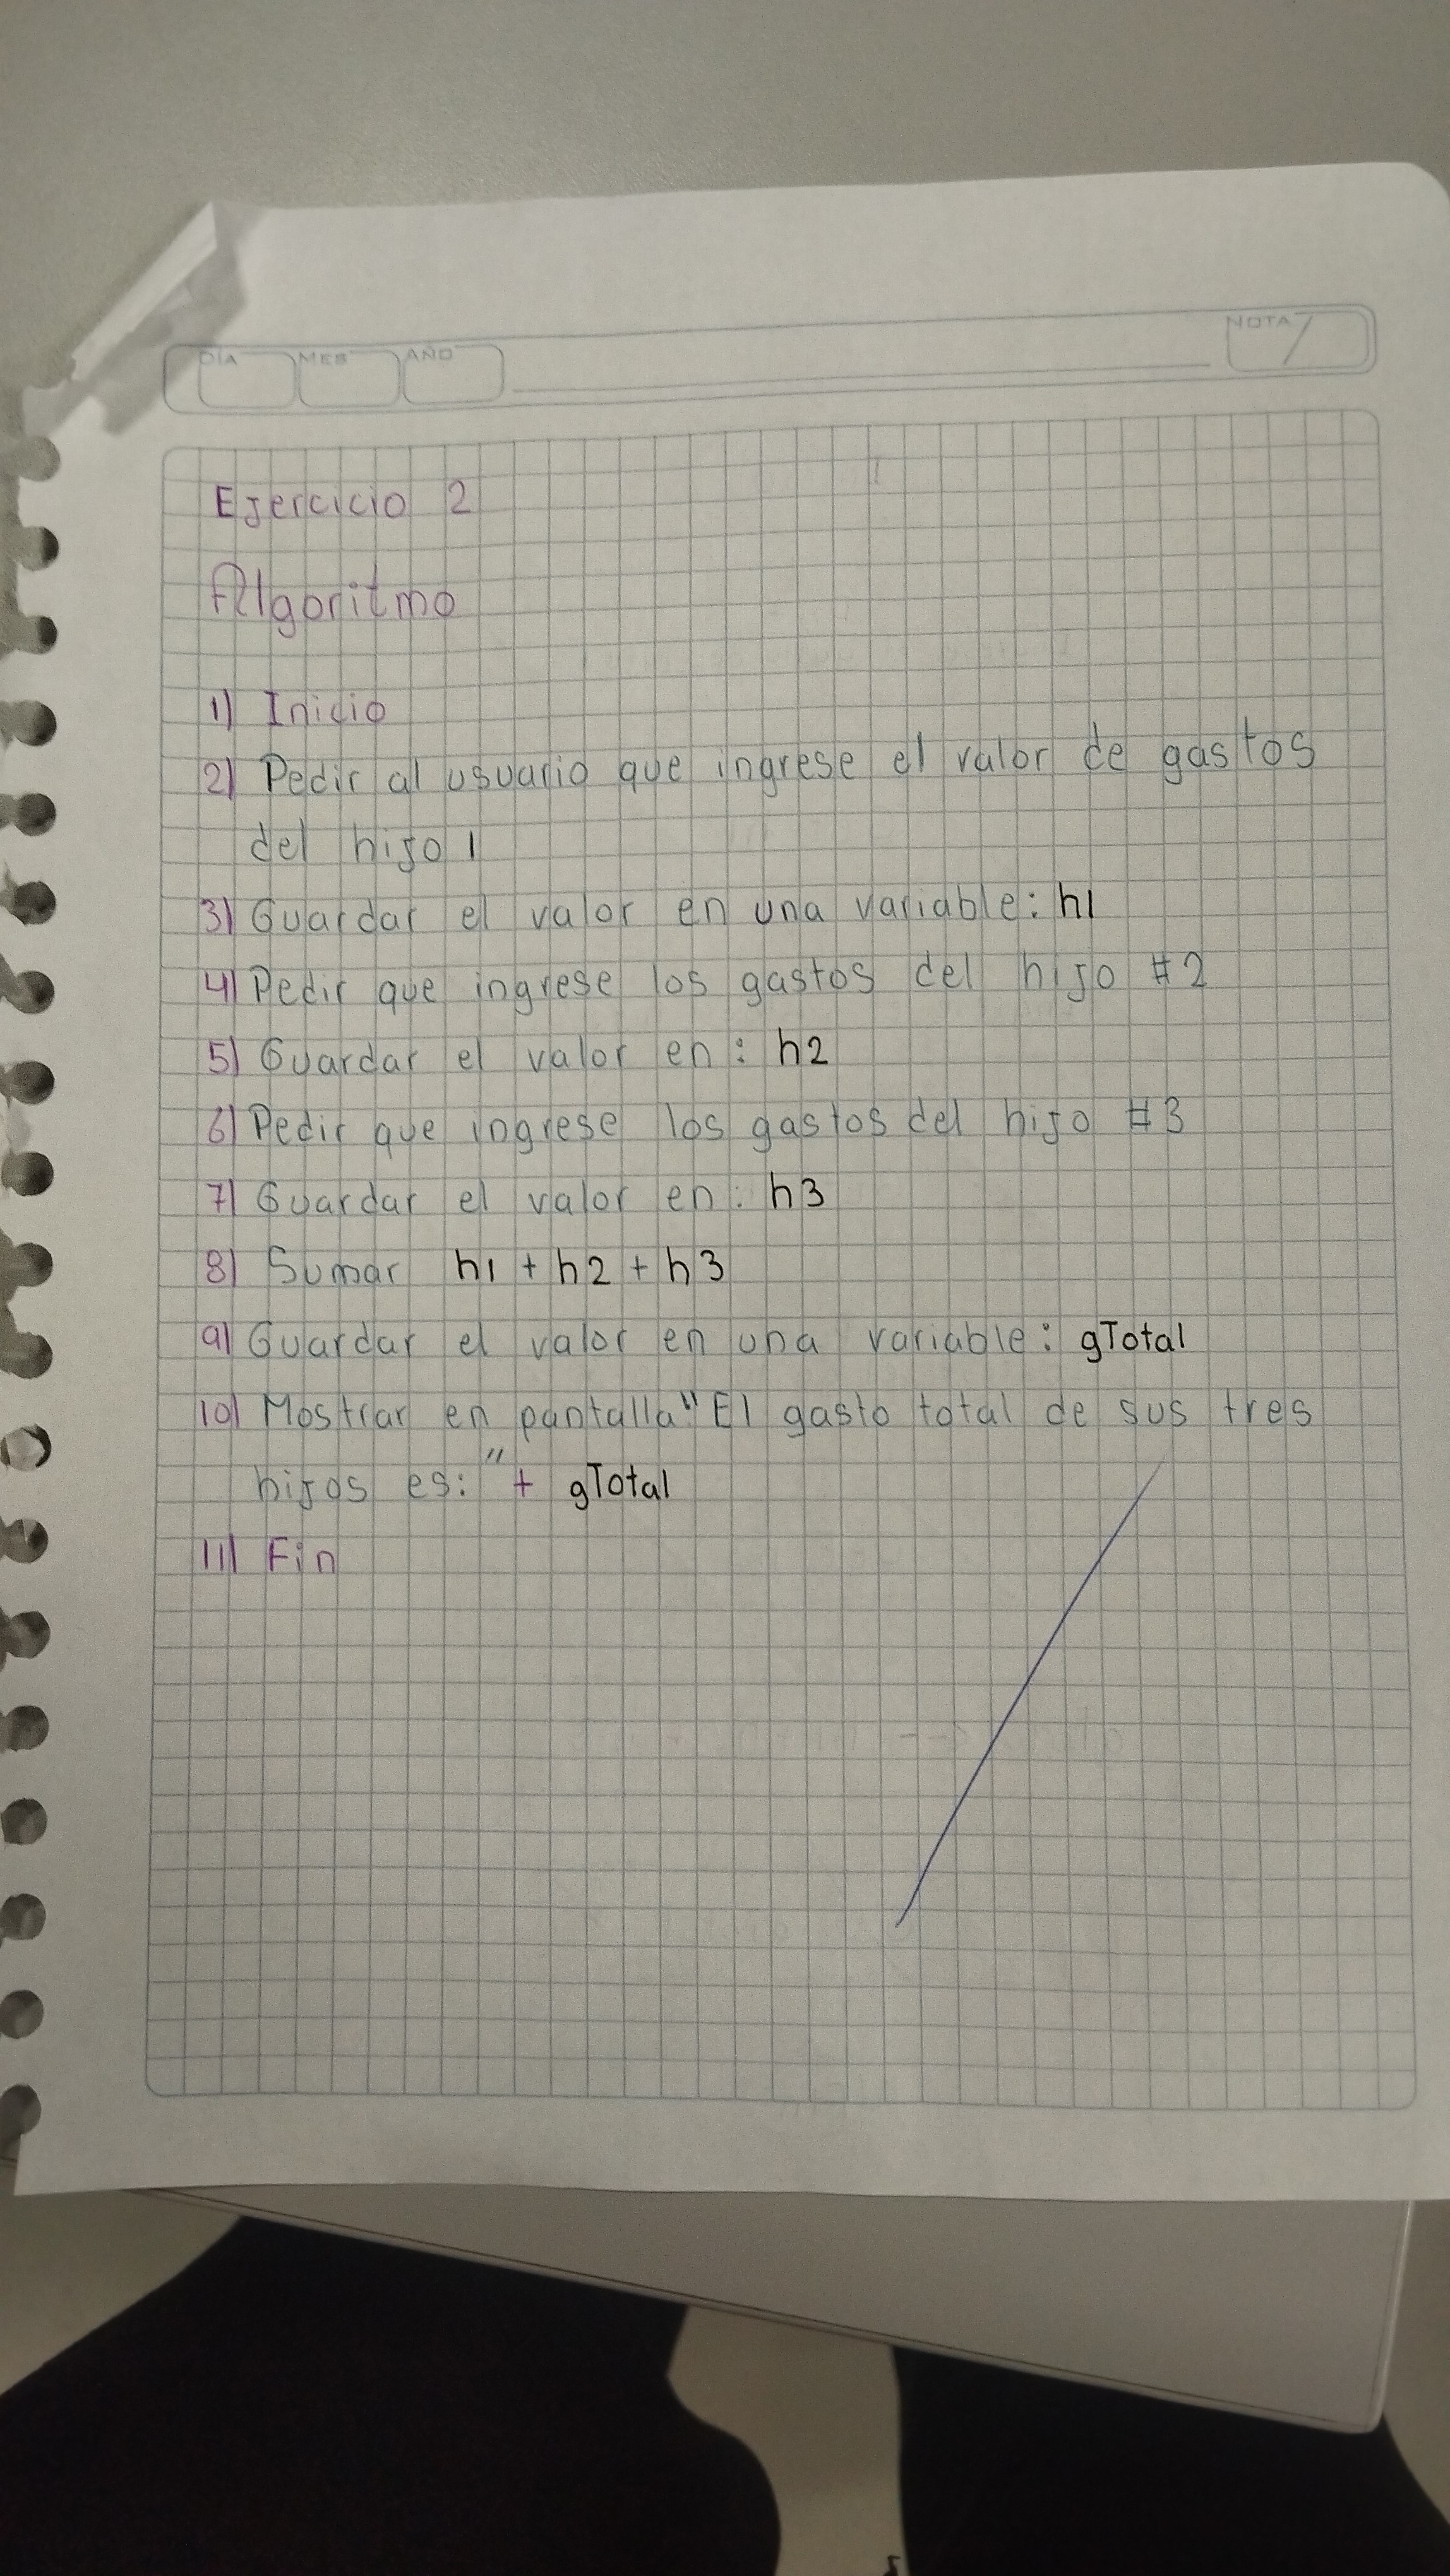 DÍA MES AÑO NOTA
Ejercicio 2
Algoritmo
1) Inicio
2) Pedir al usuario que ingrese el valor de gastos
del hijo 1
3) Guardar el valor en una variable: h1
4) Pedir que ingrese los gastos del hijo #2
5) Guardar el valor en: h2
6) Pedir que ingrese los gastos del hijo #3
7) Guardar el valor en: h3
8) Sumar h1 + h2 + h3
9) Guardar el valor en una variable: gTotal
10) Mostrar en pantalla "El gasto total de sus tres
hijos es: " + gTotal
11) Fin